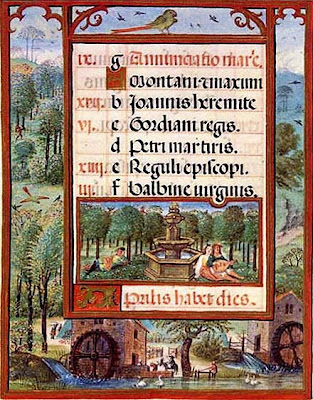 ix. g Annunciatio marie.
Montani maximi
xvij. b Joannis heremite
vi. c Gordiani regis.
d Petri martiris.
xiiij. e Reguli episcopi.
iij. f Balbine virginis.
Aprilis habet dies.